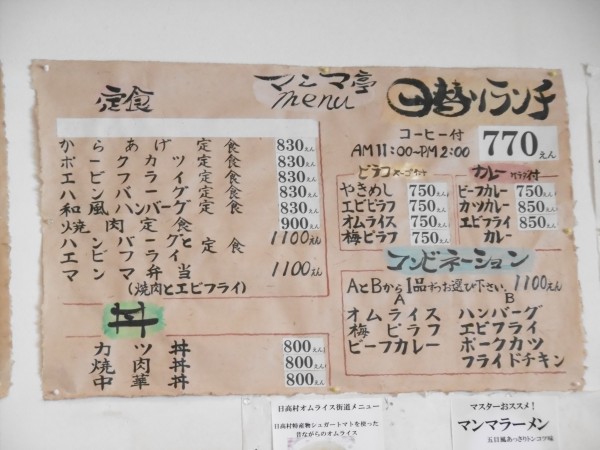 マンマ亭
menu
定食
からあげ定食 830えん
ポークカツ定食 830えん
エビフライ定食 830えん
ハンバーグ定食 830えん
和風ハンバーグ定食 830えん
焼肉定食 900えん
ハンバーグと
エビフライ定食 1100えん
マンマ弁当 1100えん
(焼肉とエビフライ)
丼
カツ丼 800えん
焼肉丼 800えん
中華丼 800えん
日替りランチ
コーヒー付
AM11:00~PM2:00
770えん
ピラフ スープ付
やきめし 750えん
エビピラフ 750えん
オムライス 750えん
梅ピラフ 750えん
カレー サラダ付
ビーフカレー 750えん
カツカレー 850えん
エビフライ 850えん
カレー
コンビネーション
AとBから1品ずつお選び下さい。1100えん
A
オムライス
梅ピラフ
ビーフカレー
B
ハンバーグ
エビフライ
ポークカツ
フライドチキン
日高村オムライス街道メニュー
日高村特産物シュガートマトを使った
昔ながらのオムライス
マスターおススメ!
マンマラーメン
五目風あっさりトンコツ味